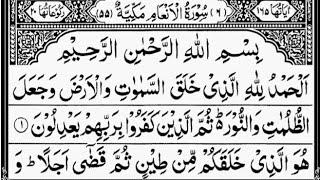 اٰيَاتُهَا ١٦٥ (٦) سُوْرَةُ الْاَنْعَامِ مَكِّيَّةٌ (٥٥) رُكُوْعَاتُهَا ٢٠
بِسْمِ اللّٰهِ الرَّحْمٰنِ الرَّحِيْمِ
اَلْحَمْدُ لِلّٰهِ الَّذِيْ خَلَقَ السَّمٰوٰتِ وَالْاَرْضَ وَجَعَلَ
الظُّلُمٰتِ وَالنُّوْرَ ۬ؕ ثُمَّ الَّذِيْنَ كَفَرُوْا بِرَبِّهِمْ يَعْدِلُوْنَ ١
هُوَ الَّذِيْ خَلَقَكُمْ مِّنْ طِيْنٍ ثُمَّ قَضٰۤى اَجَلًا ؕ وَ